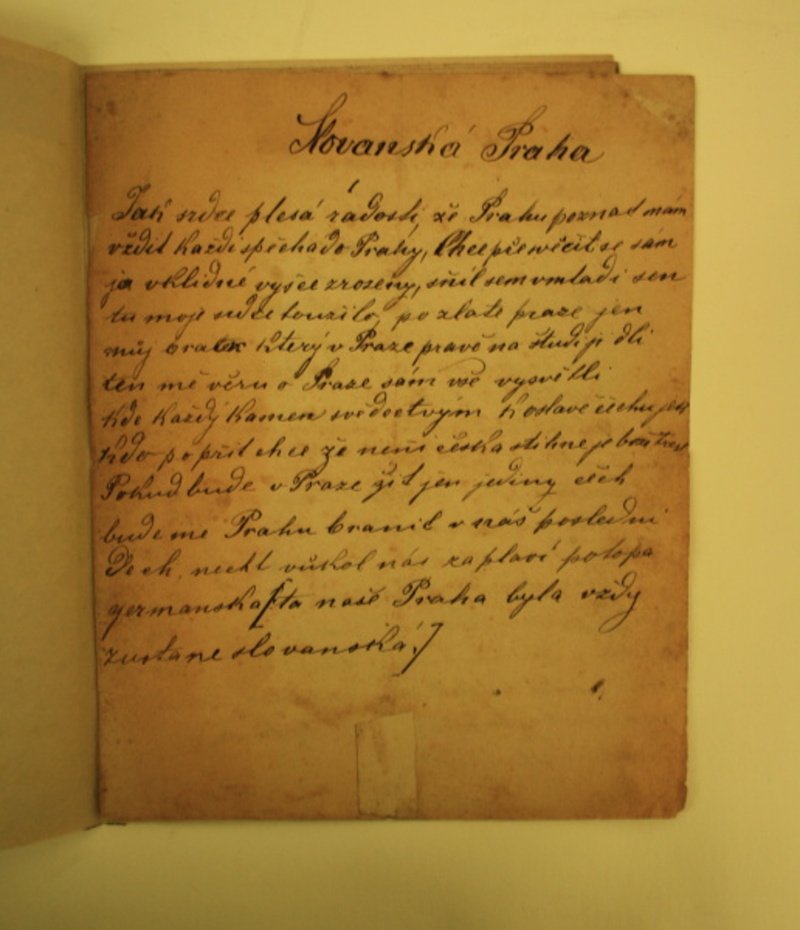 Slovanská Praha
Jak srdce plesá radosti že Prahu poznat mám
vždit každi spěcha do Prahy, Chce přewěčit se sám
ja vklidné vysce zrozeny, sňil sem vmladi sen
tu moje srdce toužilo, po zlate praze jen
můj bratr který v Praze pravě na študiji dli
ten mě věru o Praze sám vše vysvětli
kde každý kamen svědectvým k oslavě čechu jest
kdo popřit chce že neňi česka stihne je boži trest
Pokud bude v Praze žit jen jediny čech
budeme Prahu branit v náš posledni
dech, necht vůkol nás zaplaví potopa
germanska [ta naše Praha byla vždy
zustane slovanská!]